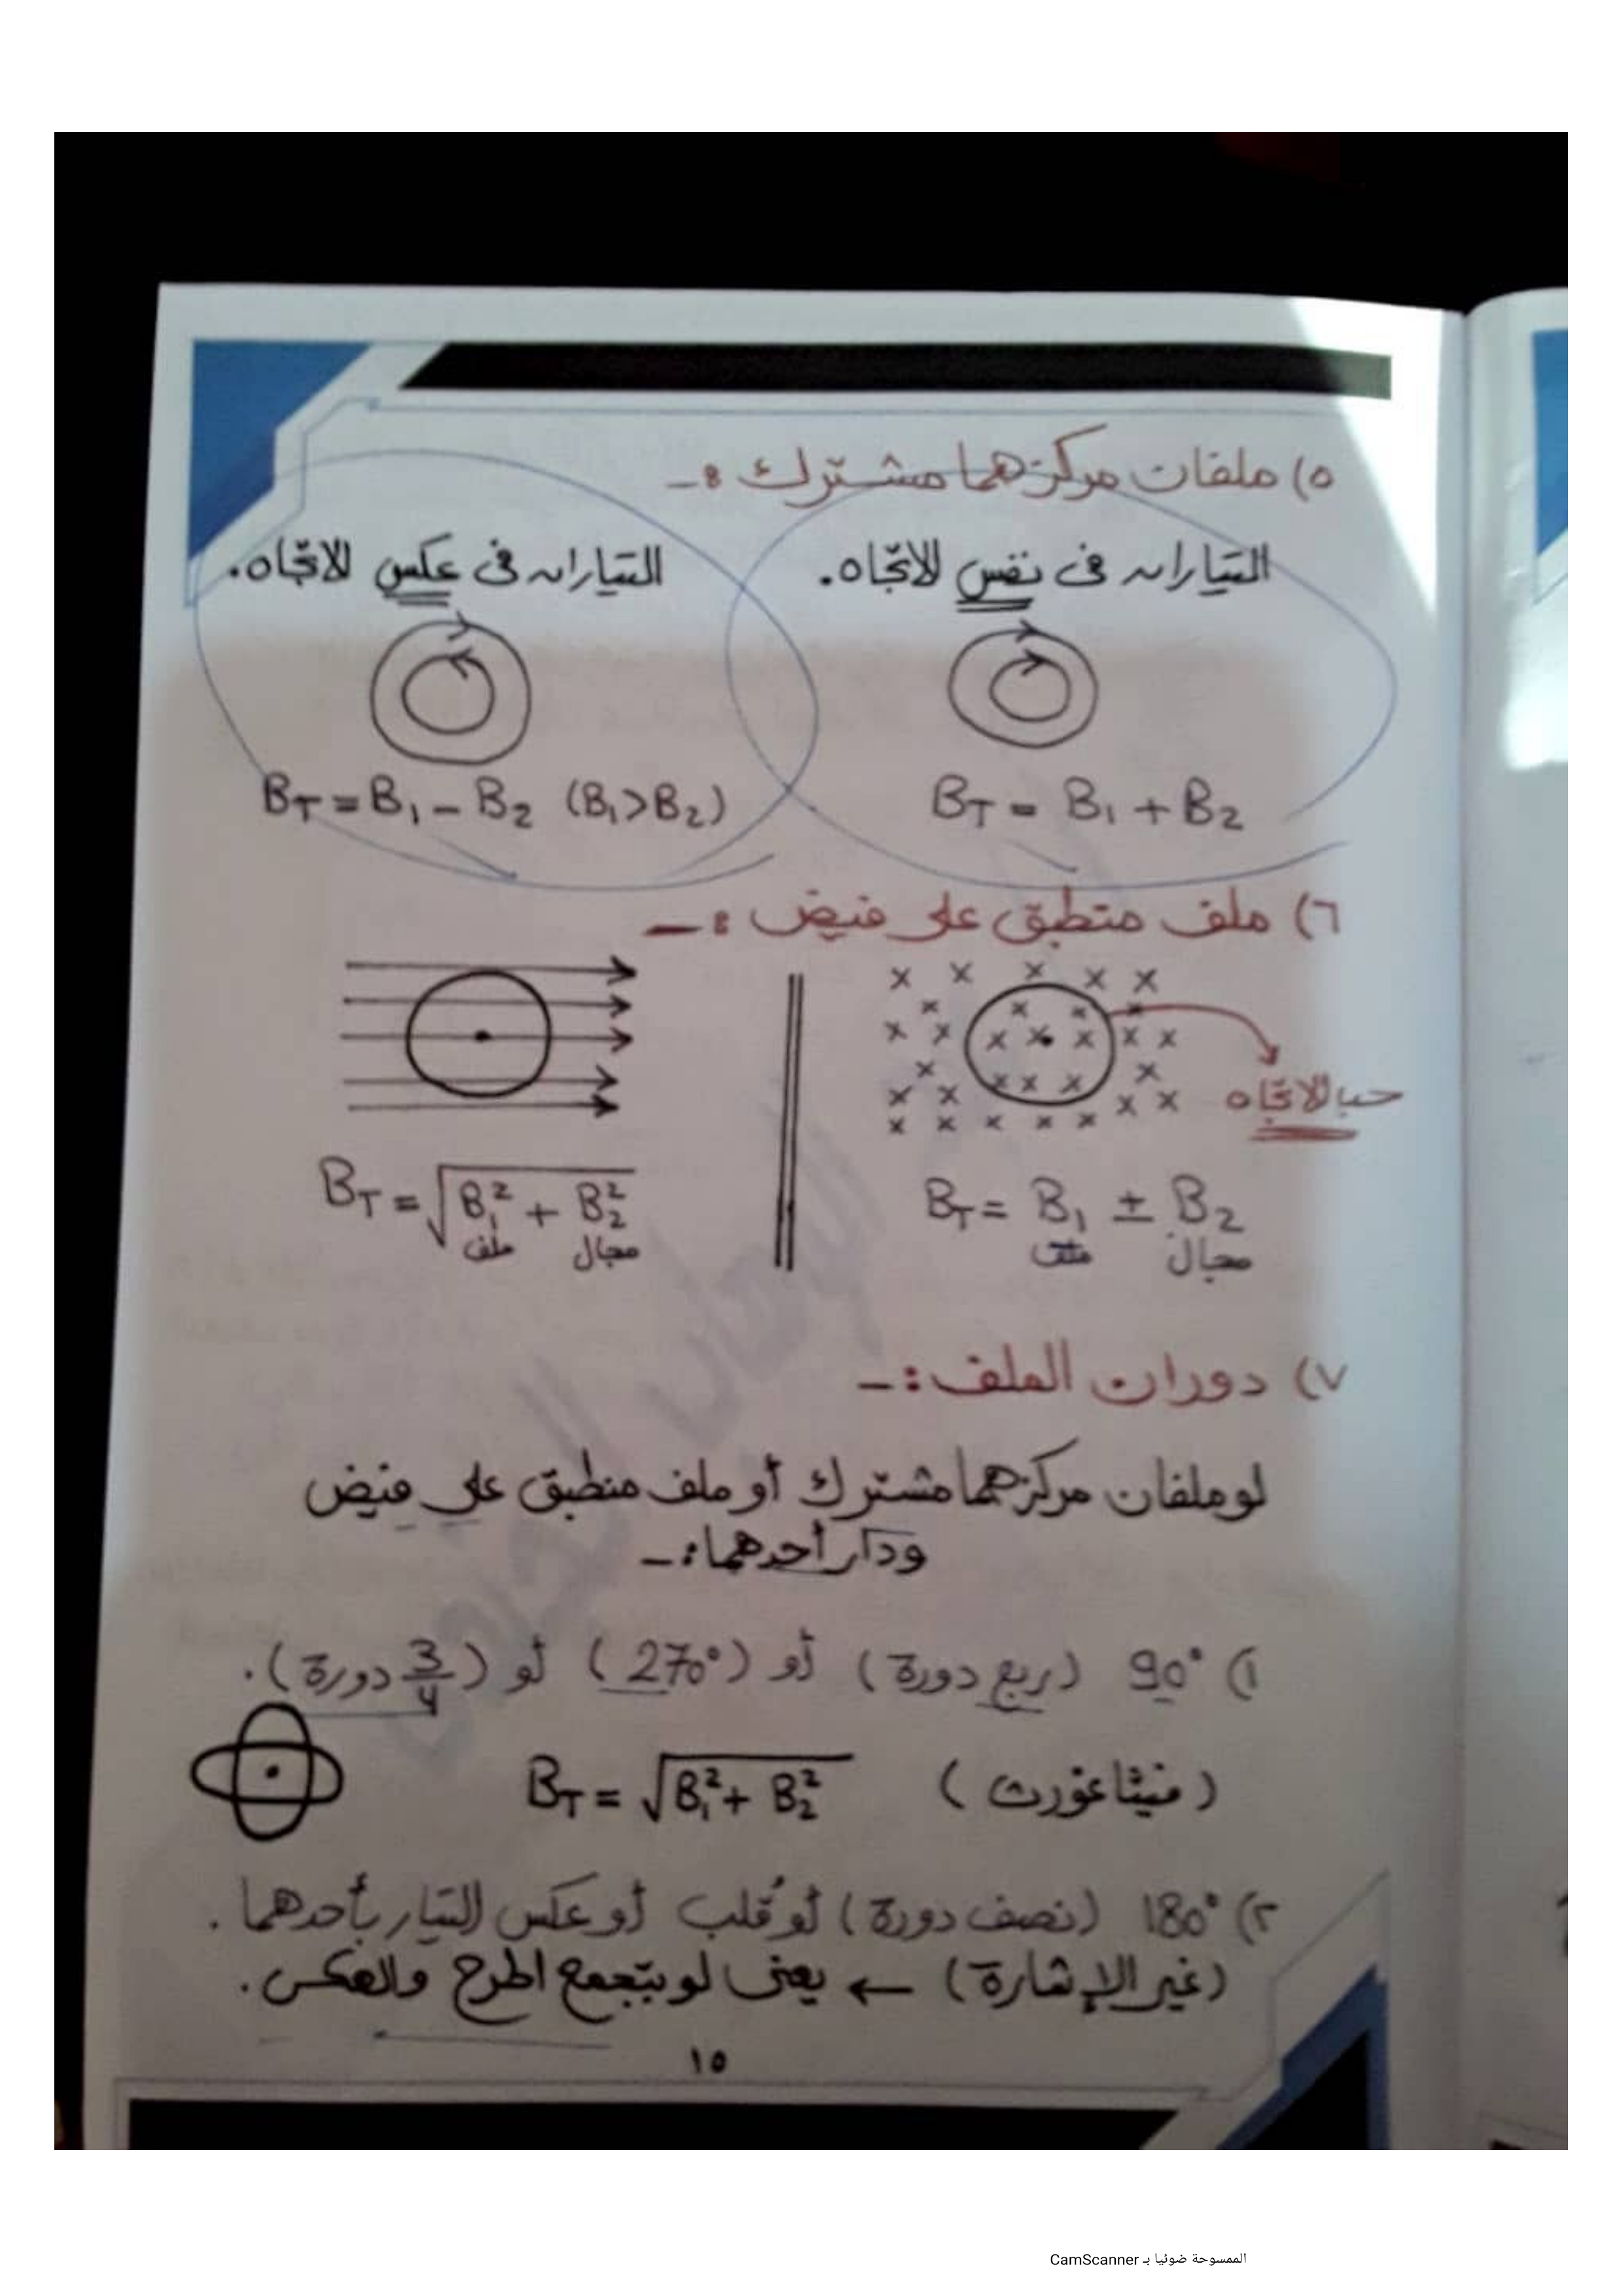 ٥) ملفان مركزهما مشترك :-
التياران فى نفس الاتجاه.
التياران فى عكس الاتجاه.
B_T = B₁ + B₂
B_T = B₁ - B₂ (B₁>B₂)
٦) ملف منطبق على فيض :-
حسب الاتجاه
B_T = B₁ ± B₂
ملف مجال
B_T = √B₁² + B₂²
ملف مجال
٧) دوران الملف :-
لو ملفان مركزهما مشترك أو ملف منطبق على فيض
ودار أحدهما :-
١) 90° (ربع دورة) أو (270°) أو (3/4 دورة).
B_T = √B₁² + B₂² (فيثاغورث)
٢) 180° (نصف دورة) أو قُلب أو عكس التيار بأحدهما.
(غير الإشارة) ← يعنى لو بتجمع اطرح والعكس.
١٥
الممسوحة ضوئيا بـ CamScanner